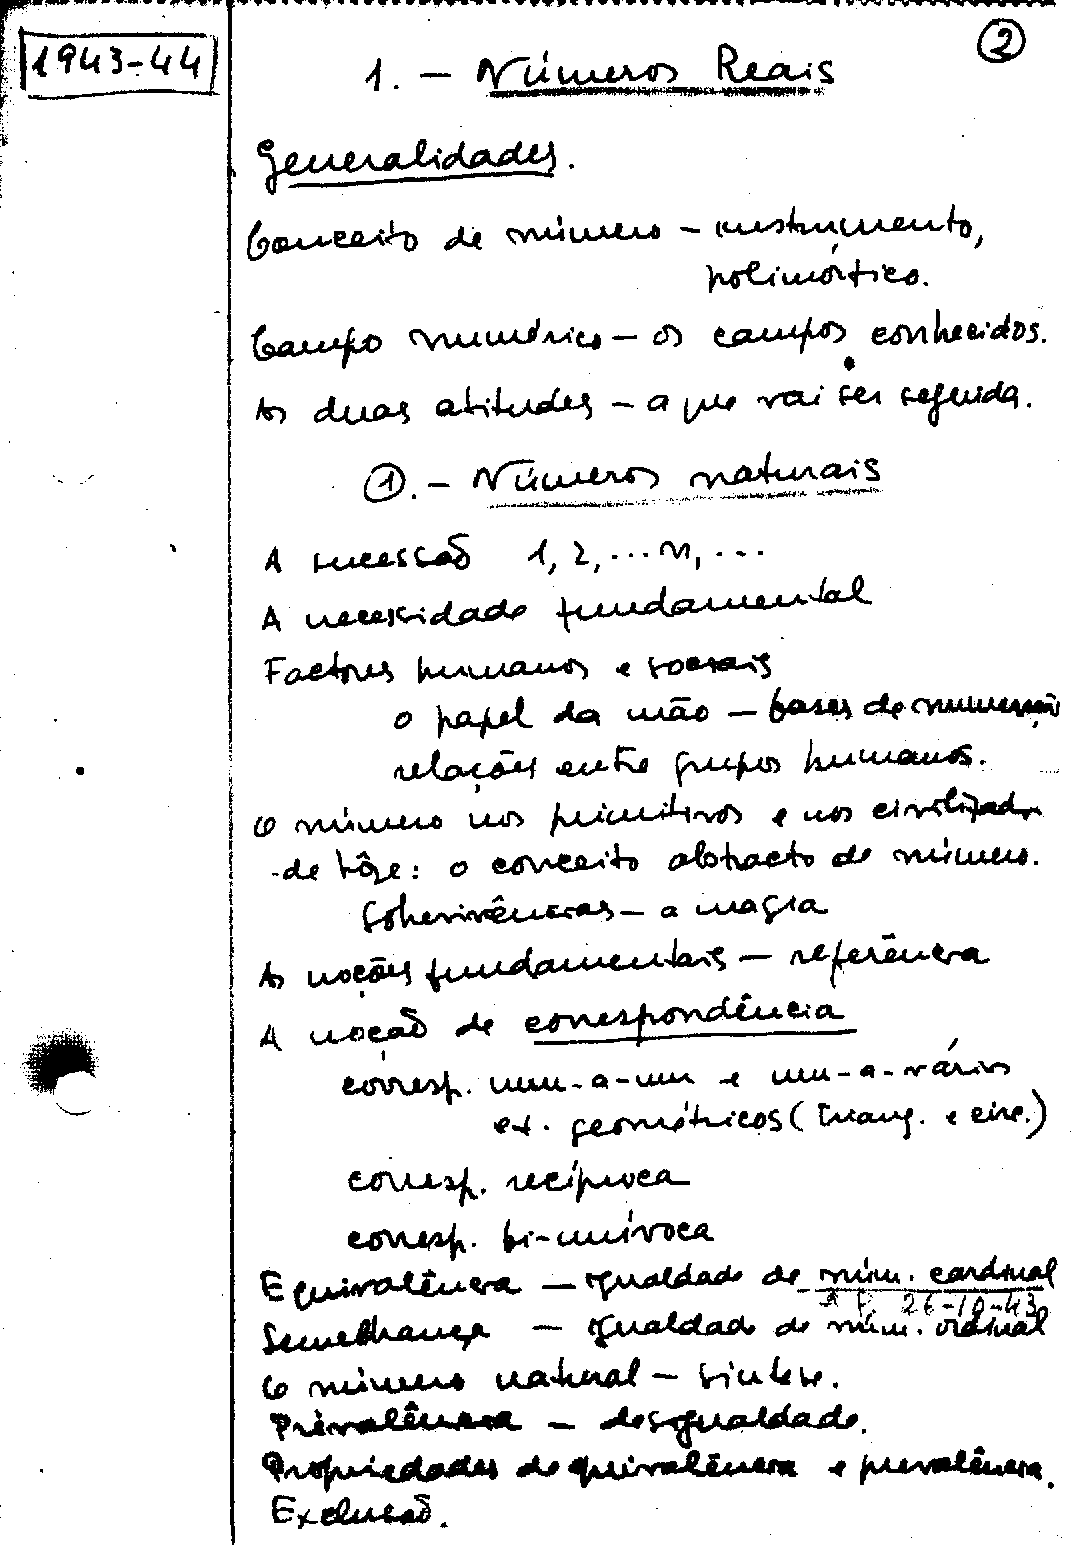 1943-44
②
1. - Números Reais
Generalidades.
Conceito de número - instrumento,
polimórfico.
Campo numérico - os campos conhecidos.
As duas atitudes - a que vai ser seguida.
①. - Números naturais
A sucessão 1, 2, ... n, ...
A necessidade fundamental
Factores humanos e sociais
o papel da mão - bases de numeração
relações entre grupos humanos.
O número nos primitivos e nos civilizados
de hôje: o conceito abstracto de número.
Sobrevivências - a magia
As noções fundamentais - referência
A noção de correspondência
corresp. um-a-um e um-a-vários
ex. geométricos (triang. e circ.)
corresp. recíproca
corresp. bi-unívoca
Equivalência - igualdade de núm. cardinal
26-10-43
Semelhança - igualdade de núm. ordinal
O número natural - síntese.
Prevalência - desigualdade.
Propriedades de equivalência e prevalência.
Exclusão.